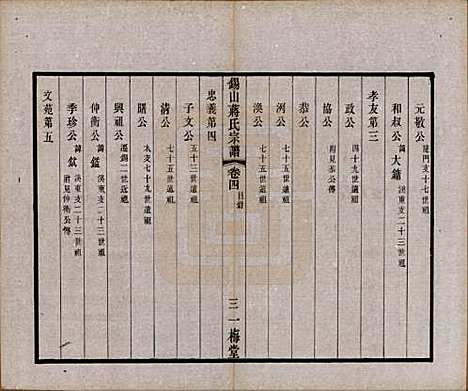 元敬公 龍門支十七世祖
和叔公 諱大鏞 洪東支二十三世祖
孝友第三
政公 四十九世遠祖
協公 附見恭公傳
恭公
洌公 七十五世遠祖
渙公 七十五世遠祖
錫山蔣氏宗譜 卷四 目錄 三 一梅堂
忠義第四
子文公 五十三世遠祖
清公 七十五世遠祖
曙公 太支七十九世遠祖
興祖公 遷錫二世近祖
伸衡公 諱鎰 洪東支二十三世祖
季珍公 諱 洪東支二十三世祖 附見伸衡公傳
文苑第五